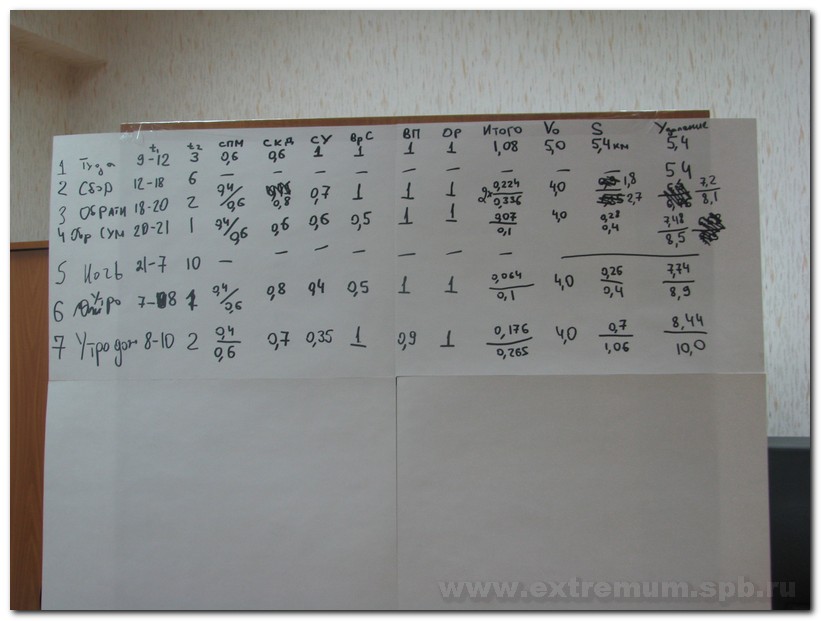 t₁ t₂ СПМ СКД СУ ВрС ВП ОР Итого V₀ S Удаление
1 Туда 9-12 3 0,6 0,6 1 1 1 1 1,08 5,0 5,4 км 5,4
2 Сбор 12-18 6 — — — — — — — — — 5 4
3 Обратн 18-20 2 0,4/0,6 0,8 0,7 1 1 1 2x 0,224/0,336 4,0 1,8 2,7 7,2/8,1
4 Обр СУМ 20-21 1 0,4/0,6 0,6 0,6 0,5 1 1 0,07/0,1 4,0 0,28/0,4 7,48/8,5
5 Ночь 21-7 10 — — — — — —
6 Утро 7-8 1 0,4/0,6 0,8 0,4 0,5 1 1 0,064/0,1 4,0 0,26/0,4 7,74/8,9
7 Утро дом 8-10 2 0,4/0,6 0,7 0,35 1 0,9 1 0,176/0,265 4,0 0,7/1,06 8,44/10,0
www.extremum.spb.ru